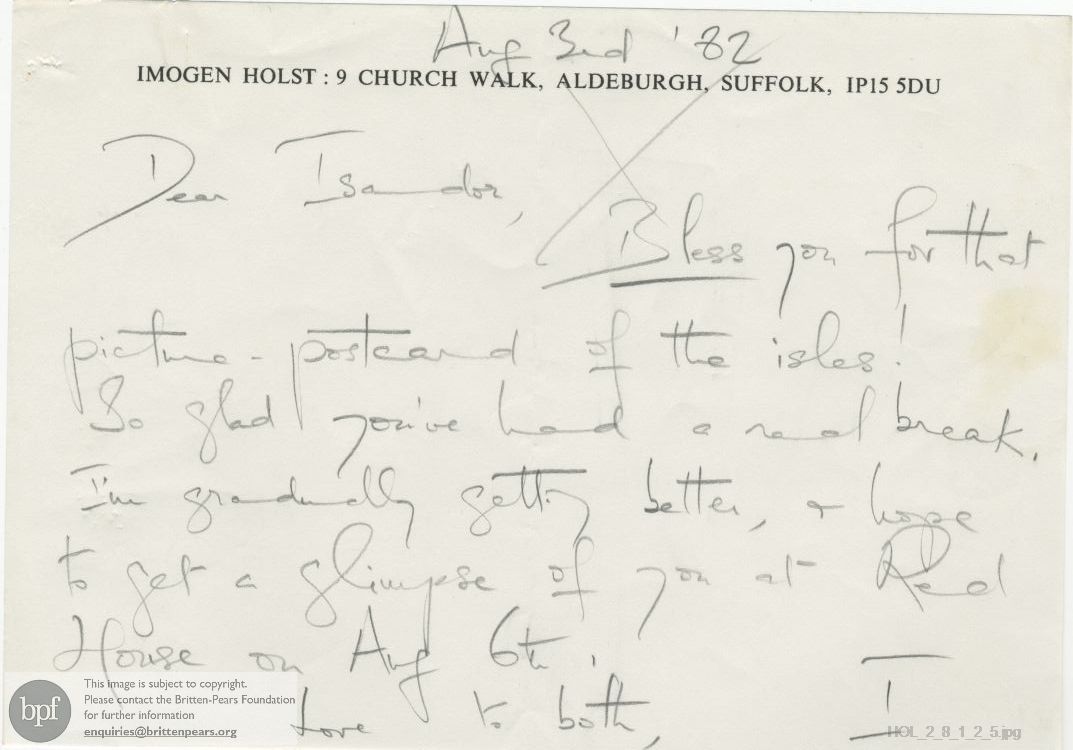 Aug 3rd '82
IMOGEN HOLST : 9 CHURCH WALK, ALDEBURGH, SUFFOLK, IP15 5DU
Dear Isador,
Bless you for that
picture-postcard of the isles!
So glad you've had a real break.
I'm gradually getting better, & hope
to get a glimpse of you at Red
House on Aug 6th.
Love to both,
I
This image is subject to copyright.
Please contact the Britten-Pears Foundation
for further information
enquiries@brittenpears.org
bpf
HOL_2_8_1_2_5.jpg